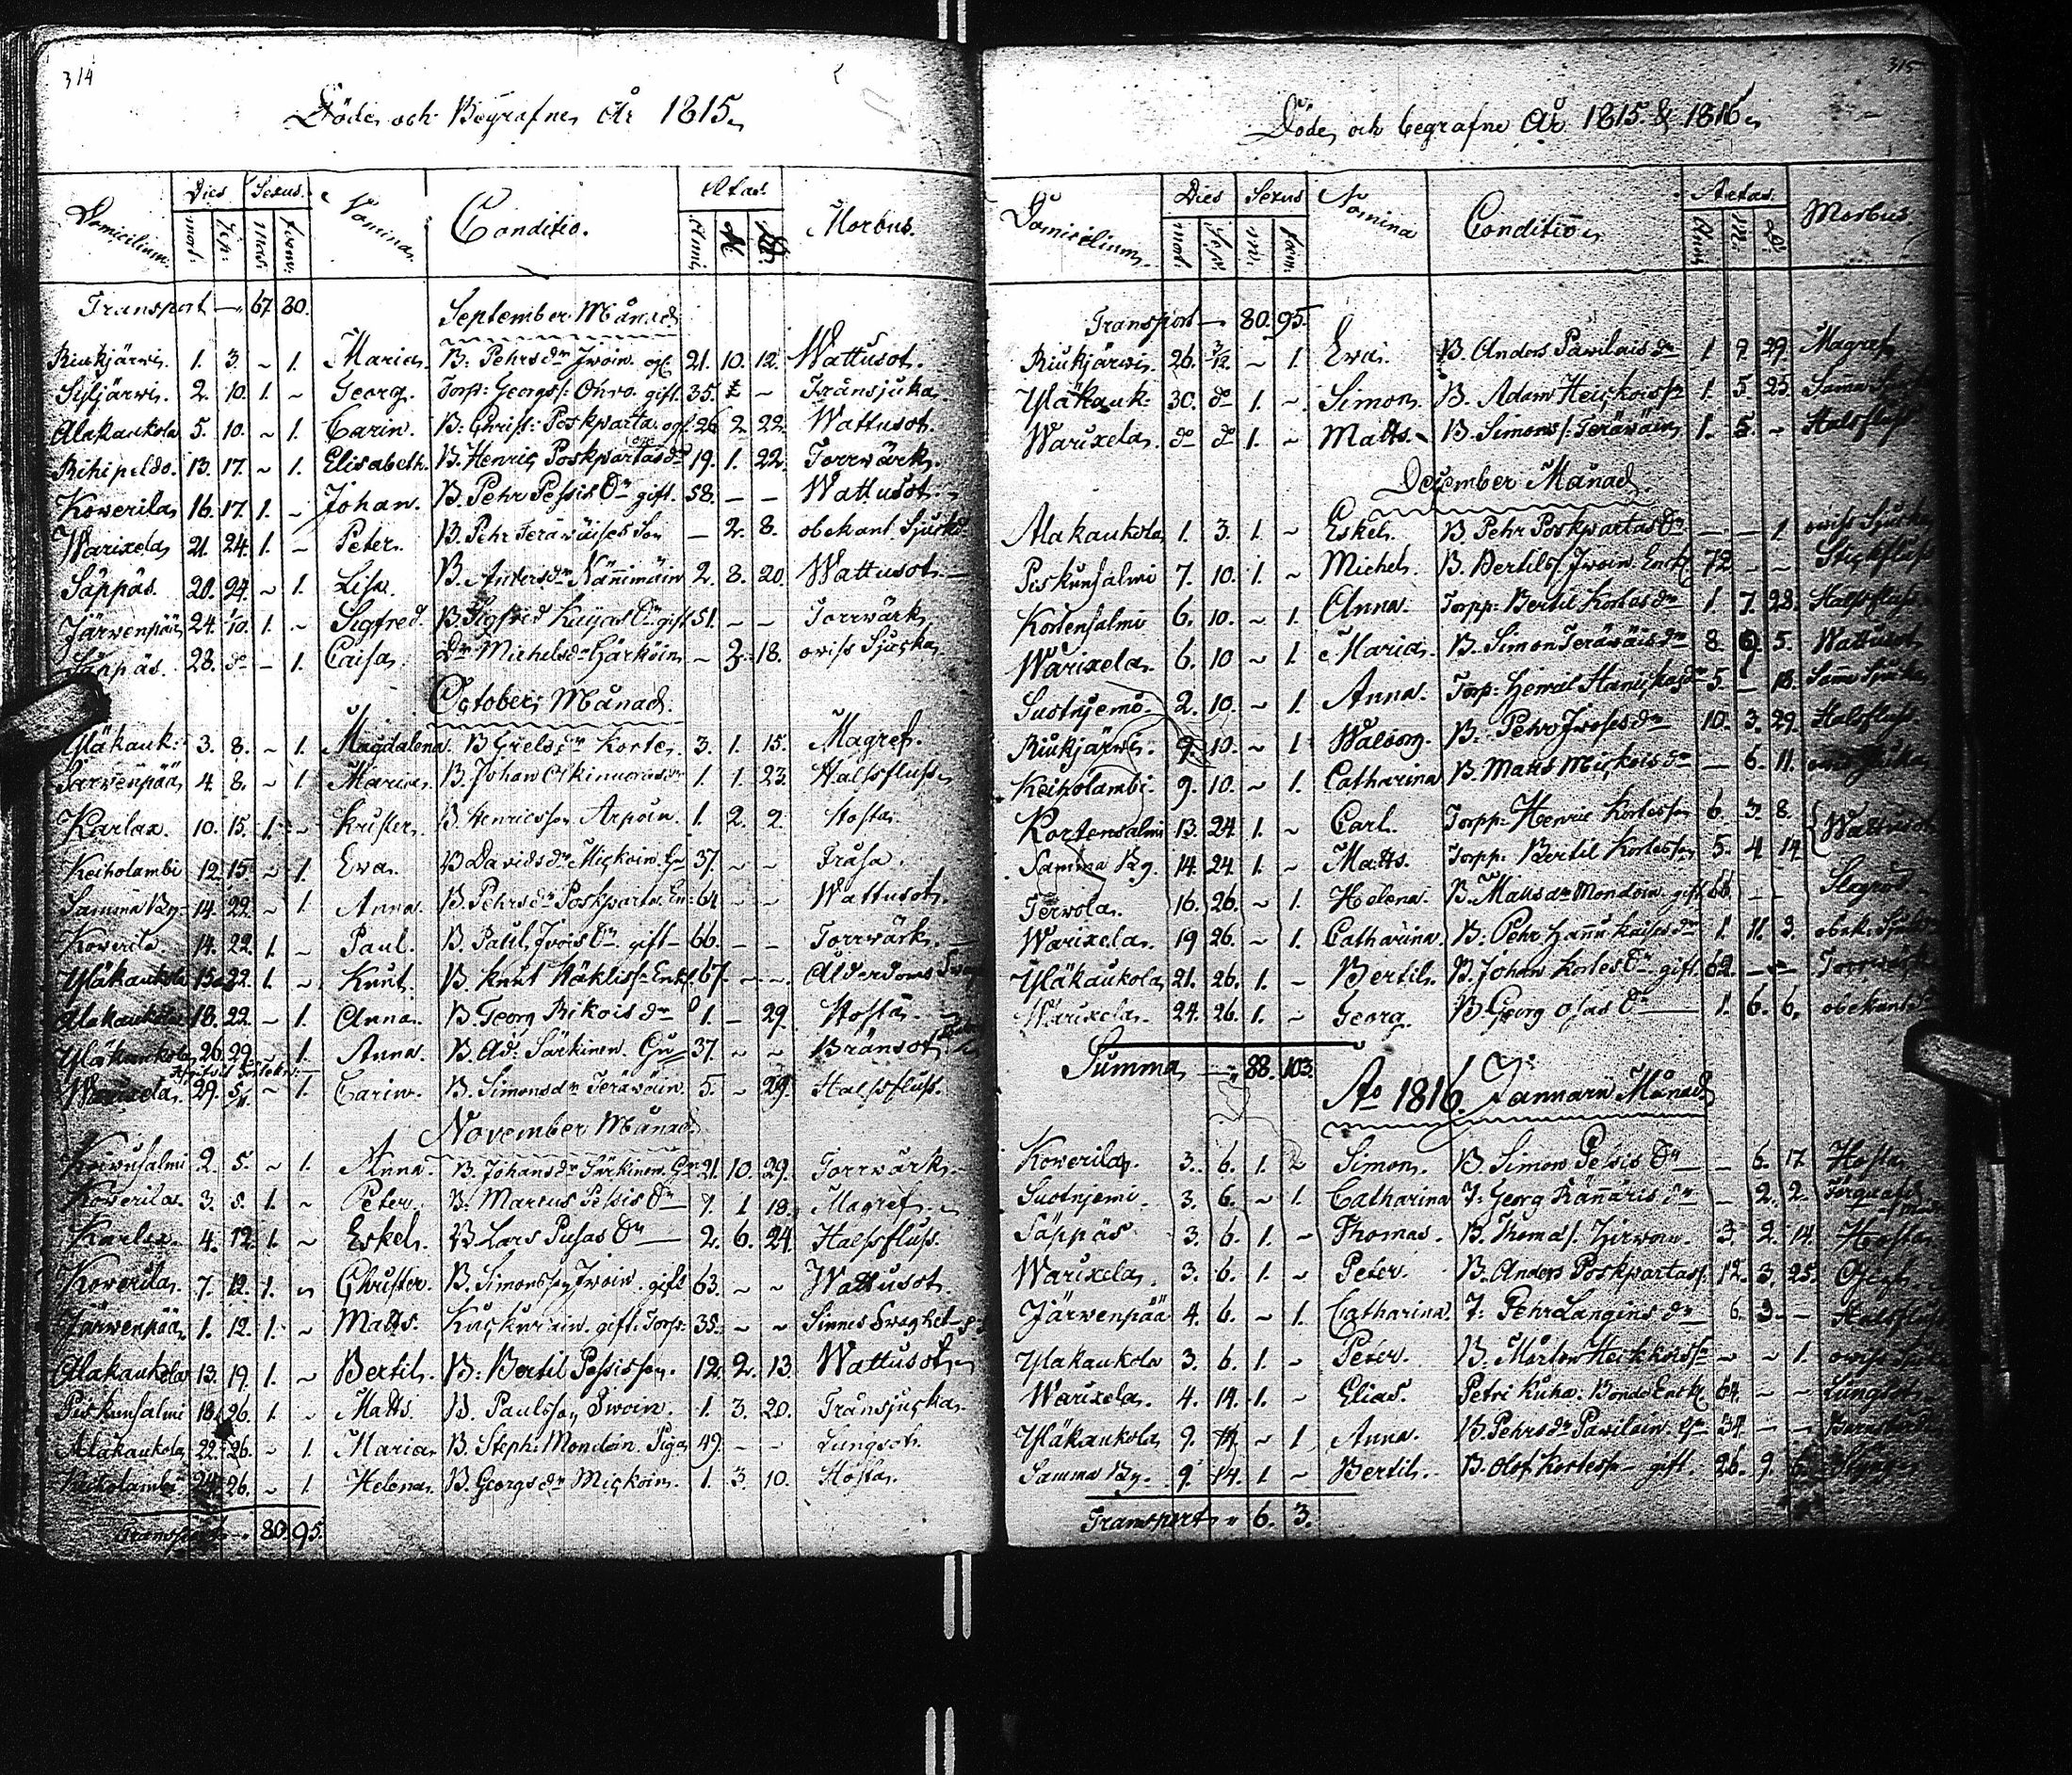 314
Döde och Begrafne År 1815.
Domicilium. Dies Sexus. Nomina. Conditio. Ætas. Morbus.
mort: Sep: Mas: foem: Anni M. D.
Transport — 67. 80.
September Månad
Riukjärwi. 1. 3. ~ 1. Maria. B. Pehrs dr Iwoin. 21. 10. 12. Wattusot.
2. 10. 1. ~ Georg. Torp: Georgs: Ohvo. gift. 35. ~ Trånsjuka.
Alakaukola 5. 10. ~ 1. Carin. B: Poskparta. 26. 2. 22. Wattusot.
Rihipeldo. 13. 17. ~ 1. Elisabeth. B. Henric Poskpartas dr 19. 1. 22. Torrwärk.
Kowerila 16. 17. 1. ~ Johan. B. Pehr Pessis Sn gift. 58. — — Wattusot.
Warixela 21. 24. 1. ~ Peter. B. Pehr Teräwäises Son — 2. 8. obekant Sjuka
Säppäs. 20. 24. ~ 1. Lisa. B. Anders dr Nännimäin 2. 8. 20. Wattusot.
Järwenpää 24. 1. ~ Sigfred. B. Sigfrid Sn gift 51. — — Torrwärk
Säppäs. 28. do — 1. Caisa. Dr Michels dr Härköin ~ 2. 18. owiss Sjucka
October Månad.
Yläkauk: 3. 8. ~ 1. Magdalena. B Grels dr Kortes. 3. 1. 15. Magref.
Järwenpää 4. 8. ~ 1. Maria. B. Johan 1. 1. 23. Halsfluss
Karlax. 10. 15. 1. ~ Krister. B. Henricsson Arpoin. 1. 2. 2. Hosta.
Keiholambi 12. 15. ~ 1. Ewa. B Davids dr Mickoin. 37. ~ ~
Samma By 14. 22. ~ 1. Anna. B. Pehrs dr Poskparta. 64 ~ ~ Wattusot.
Kowerila 14. 22. 1. ~ Paul. B. Paul Iwois Sn gift 66. — — Torrwärk.
Yläkaukola 15. 22. 1. ~ Knut. B. Knut Enkl. 67. ~ ~ Ålderdoms
Alakaukola 18. 22. ~ 1. Anna. B. Georg Rikois dr 1. — 29. Hosta.
Yläkaukola 26. 29. ~ 1. Anna. B. Ad: Särkinen. 37. ~ ~ Bränsot
Warixela. 29. ~ 1. Carin. B. Simons dr Teräwäin. 5. ~ 29. Halsfluss.
November Månad.
2. 5. ~ 1. Anna. B. Johans dr Särkinen. 21. 10. 29. Torrwärk.
Kowerila. 3. 5. 1. ~ Peter. B. Marcus Pessis Sn 7. 1. 18. Magref.
Karlax. 4. 12. 1. ~ Eskel. B Lars Pusas Sn 2. 6. 24. Halsfluss.
Kowerila. 7. 12. 1. ~ Christer. B. Simonsson Iwoin. gift 63. ~ ~ Wattusot.
Järwenpää 1. 12. 1. ~ Matts. gift. Torp: 35. ~ ~ Sinnes Swaghet
Alakaukola 13. 19. 1. ~ Bertil. B: Bertil Pessisson. 12. 2. 13. Wattusot
Piskunsalmi 18. 26. 1. ~ Matts. B. Paulsson Iwoin. 1. 3. 20. Trånsjucka.
Alakaukola 22. 26. ~ 1. Maria B. Steph: Mondoin. Piga 49. ~ ~ Lungsot.
Keiholambi 24. 26. ~ 1. Helena. B. Georgs dr Mickoin. 1. 3. 10. Hosta.
Transport — 80. 95.
315
Döde och begrafne År 1815. & 1816.
Domicilium. Dies Sexus Nomina Conditio Aetas. Morbus
mort. Sep. foem. Anni M. D.
Transport — 80. 95.
Riukjärwi. 26. 3/12. ~ 1. Ewa. B. Anders Pawilais dr 1. 9. 29. Magref
Yläkauk: 30. do 1. ~ Simon. B. Adam Heickois sn 1. 5. 25. Samma
Warixela. do do 1. ~ Matts. B. Simons s. Teräwäin 1. 5. ~ Halsfluss
December Månad.
Alakaukola 1. 3. 1. ~ Eskel. B. Pehr Poskpartas Sn — — 1. owiss Sjucka
Piskunsalmi 7. 10. 1. ~ Michel. B. Bertils s. Iwoin. Enkl 72 ~ ~ Stickfluss
Kortensalmi 6. 10. ~ 1. Anna. Torpp: Bertil Kortes dr 1. 7. 28. Halsfluss
Warixela. 6. 10 ~ 1. Maria. B. Simon Teräwäis dr 8. 9. 5. Wattusot
Suotnjemi. 2. 10. ~ 1. Anna. Torp: Henric dr 5. — 13. Samma Sjucka
Riukjärwi. 9. 10. ~ 1 Walborg. B. Pehr Iwoses dr 10. 3. 29. Halsfluss
Keiholambi. 9. 10. ~ 1. Catharina B. Matts Mickois dr — 6. 11. owiss Sjuka
Kortensalmi 13. 24. 1. ~ Carl. Torpp: Henric Kortesson 6. 3. 8. Wattusot
Samma By. 14. 24. 1. ~ Matts. Torpp. Bertil Kortesson 5. 4. 14.
Terwola. 16. 26. ~ 1. Helena. B. Matts dr Mondoin. gift 66. — — Slagrot
Warixela. 19 26. ~ 1. Catharina. B: Pehr Hannukaises dr 1. 11. 3. obek. Sjuk
Yläkaukola 21. 26. 1. — Bertil. B. Johan Kortes Sn gift. 62. — — Torrwärk
Warixela. 24. 26. 1. ~ Georg. B. Georg Osas Sn 1. 6. 6. obekant
Summa — 88. 103.
Ao 1816. Januarii Månad
Kowerila. 3. 6. 1. ~ Simon. B. Simon Pessis Sn — 6. 17. Hosta
Suotnjemi. 3. 6. ~ 1. Catharina T: Georg dr — 2. 2.
Säppäs 3. 6. 1. ~ Thomas. B. Thomas s. Hirwoin. 3. 2. 14. Hosta
Warixela. 3. 6. 1. ~ Peter. B. Anders Poskpartas s. 12. 3. 25.
Järwenpää 4. 6. ~ 1. Catharina. T: Pehr Langins dr 6. 3. ~ Halsfluss
Yläkaukola 3. 6. 1. ~ Peter. B. Mårten Heickois sn ~ ~ 1. owiss
Warixela. 4. 14. 1. ~ Elias. Petri Kuha: Bonde Enckl 64. ~ ~ Lungsot
Yläkaukola 9. 14. ~ 1 Anna. B. Pehrs dr Pawilain. 34. — —
Samma By. 9. 14. 1 ~ Bertil. B. Olof Kortes sn gift. 26. 9.
Transport „ 6. 3.